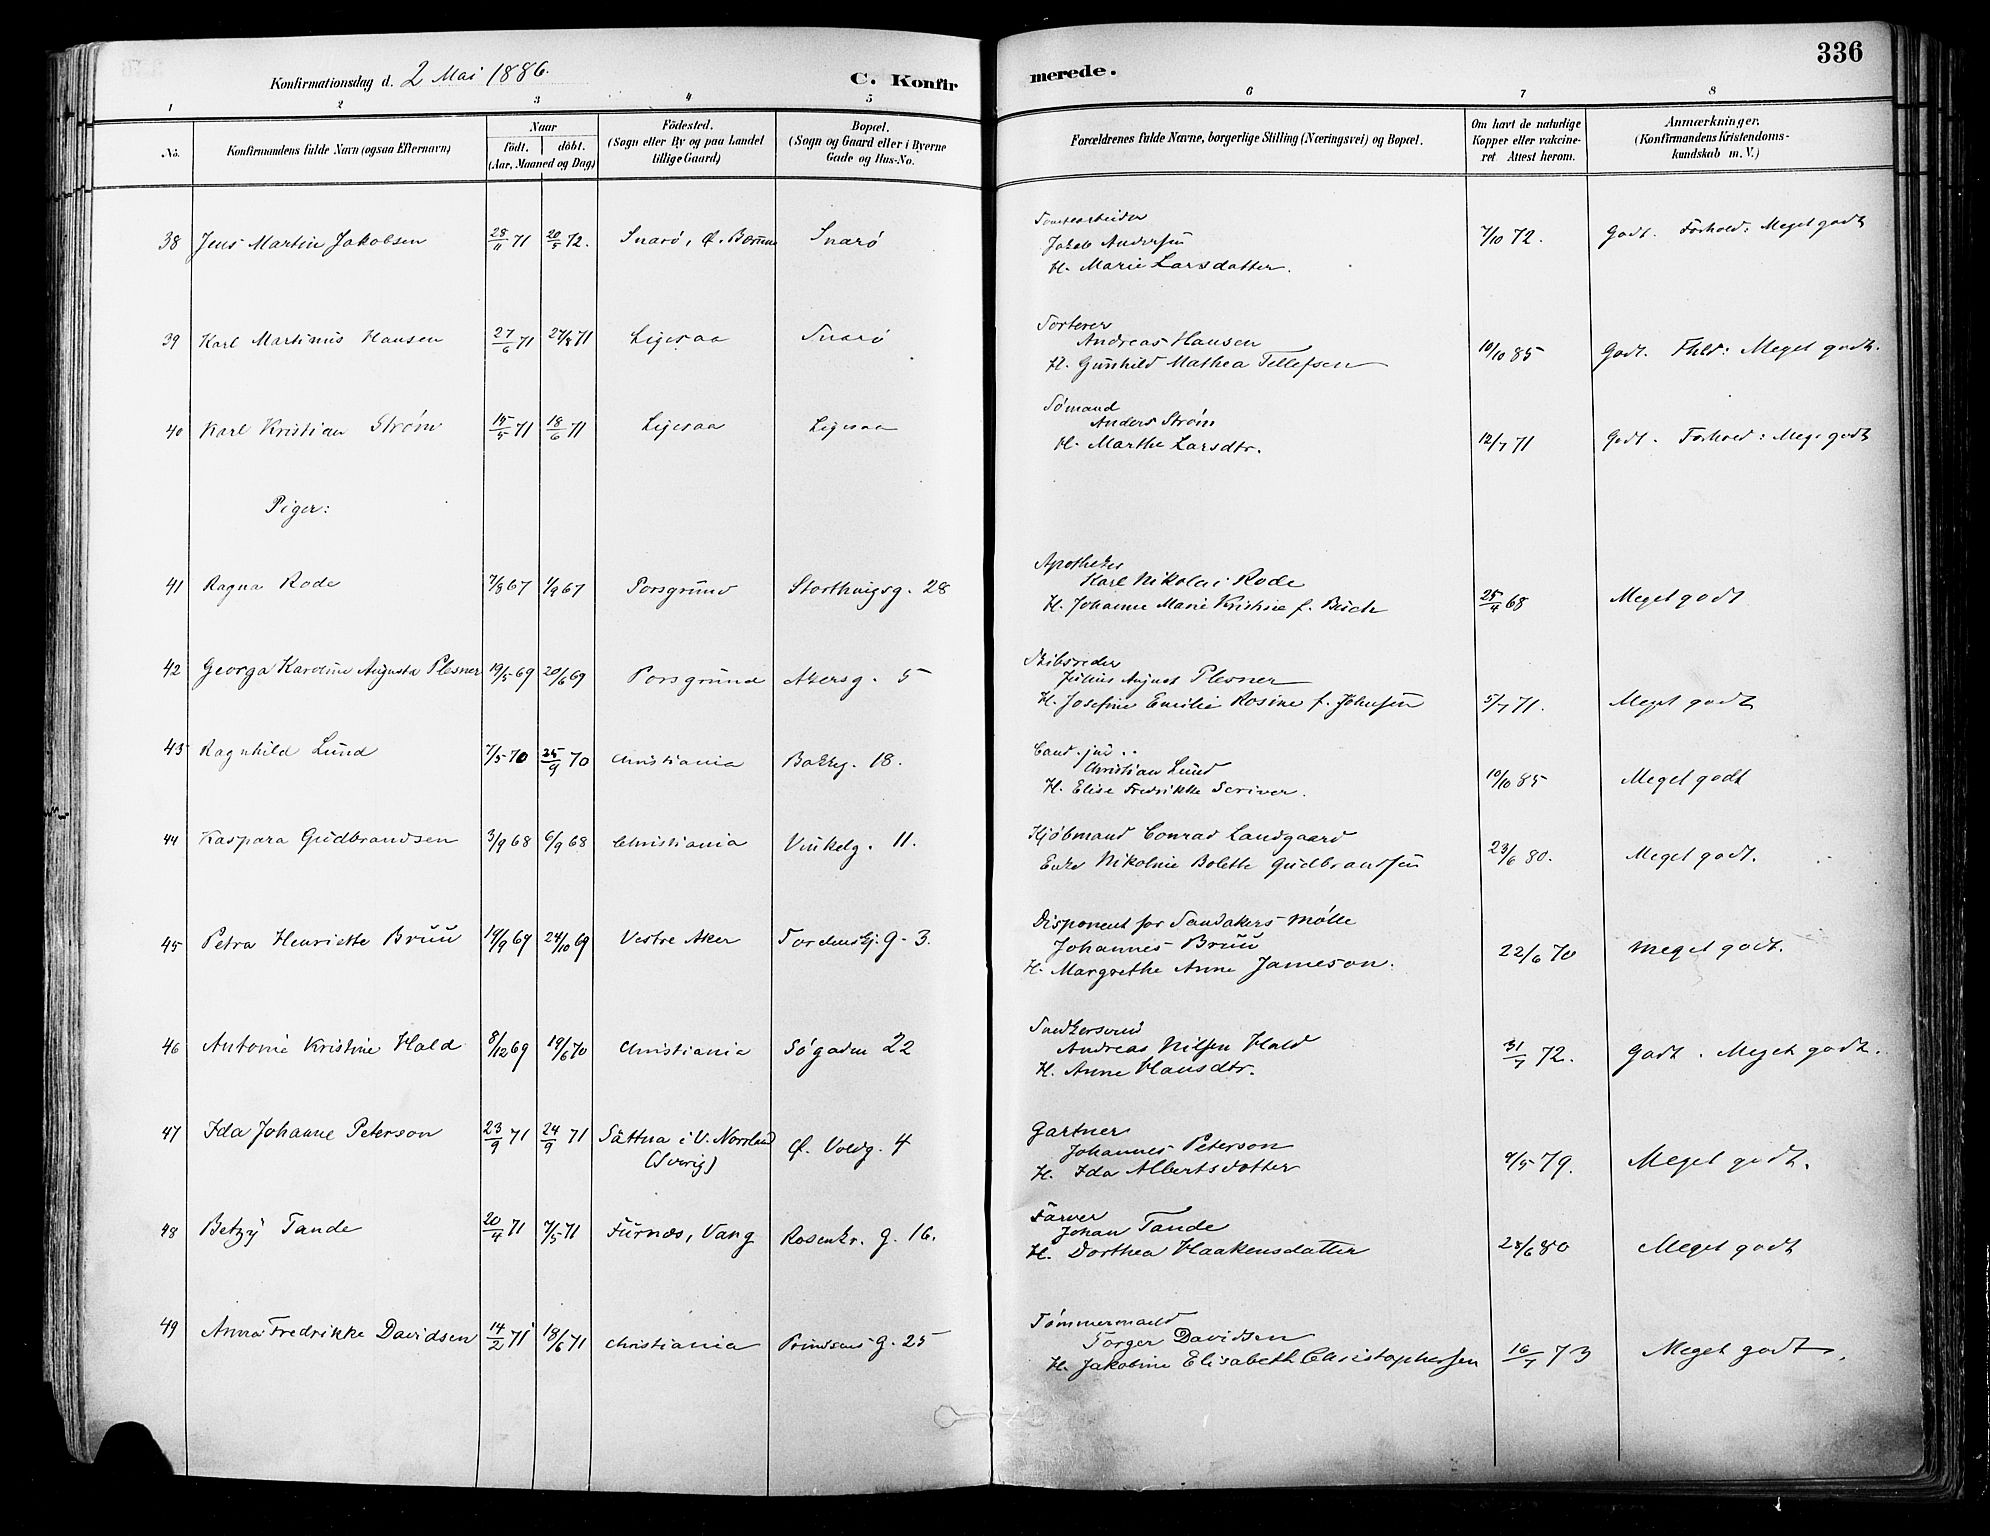 336
Konfirmationsdag d. 2 Mai 1886. C. Konfir merede.
1 2 3 4 5 6 7 8
No. Konfirmandens fulde Navn (ogsaa Efternavn) Naar födt. döbt. (Aar, Maaned og Dag) Födested. (Sogn eller By og paa Landet tillige Gaard) Bopæl. (Sogn og Gaard eller i Byerne Gade og Hus-No. Forældrenes fulde Navne, borgerlige Stilling (Næringsvei) og Bopæl. Om havt de naturlige Kopper eller vakcineret Attest herom. Anmærkninger. (Konfirmandens Kristendomskundskab m. V.)
38 Jens Martin Jakobsen 28/11 71 20/5 72. Snarö, Ø. Bærum Snarö
Tomtearbeider
Jakob Andersen
H. Marie Larsdatter. 7/10 72. Godt. Forhold: Meget godt
39 Karl Martinus Hansen 27/6 71 27/8 71 Ligesaa Snarö
Sorterer
Andreas Hansen
H. Gunhild Mathea Tellefsen 10/10 85 Godt. Fhld: Meget godt.
40 Karl Kristian Strøm 14/5 71 18/6 71 Ligesaa Ligesaa
Sømand
Anders Strøm
H. Marthe Larsdtr. 12/7 71 Godt. Forhold: Meget godt
Piger:
41 Ragna Rode 7/8 67 1/9 67 Porsgrund Storthingsg. 28
Apotheker
Karl Nikolai Rode
H. Johanne Marie Kristine f. 25/4 68 Meget godt
42 Georga Karoline Augusta Plesner 19/5 69 20/6 69 Porsgrund Akersg. 5
Skibsreder
Julius August Plesner
H. Josefine Emilie Rosine f. Johnsen 5/7 71. Meget godt
43 Ragnhild Lund 7/5 70 25/9 70 Christiania Bakkg. 18.
Cand. jur.
Christian Lund
H. Elise Fredrikke Scriver. 10/10 85 Meget godt
44 Kaspara Gudbrandsen 3/9 68 6/9 68 Christiania Vinkelg. 11.
Kjöbmand Conrad Landgaard
Enke Nikoline Bolette Gudbrandsen 23/6 80. Meget godt.
45 Petra Henriette Bruu 19/9 69 24/10 69 Vestre Aker Tordenskj. g. 3.
Disponent for Sandakers Mølle
Johannes Bruu
H. Margrethe Anne Jameson. 22/6 70 Meget godt.
46 Antonie Kristine Hald 8/12 69 19/6 70 Christiania Sögaden 22
Snedkersvend
Andreas Nilsen Hald
H. Anne Hansdtr. 31/7 72. Godt. Meget godt.
47 Ida Johanne Peterson 23/9 71 24/9 71 Sättna i V. Norrland (Sverig) Ø. Voldg. 4
Gartner
Johannes Peterson
H. Ida Albertsdotter 9/5 79. Meget godt.
48 Betzy Tande 20/4 71 7/5 71 Furnæs, Vang Rosenkr. g. 16.
Farver
Johan Tande
H. Dorthea Haakensdatter 28/6 80 Meget godt
49 Anna Fredrikke Davidsen 14/2 71 18/6 71 Christiania Prindsens G. 25
Tømmermand
Torger Davidsen
H. Jakobine Elisabeth Christophersen 16/7 73 Meget godt.